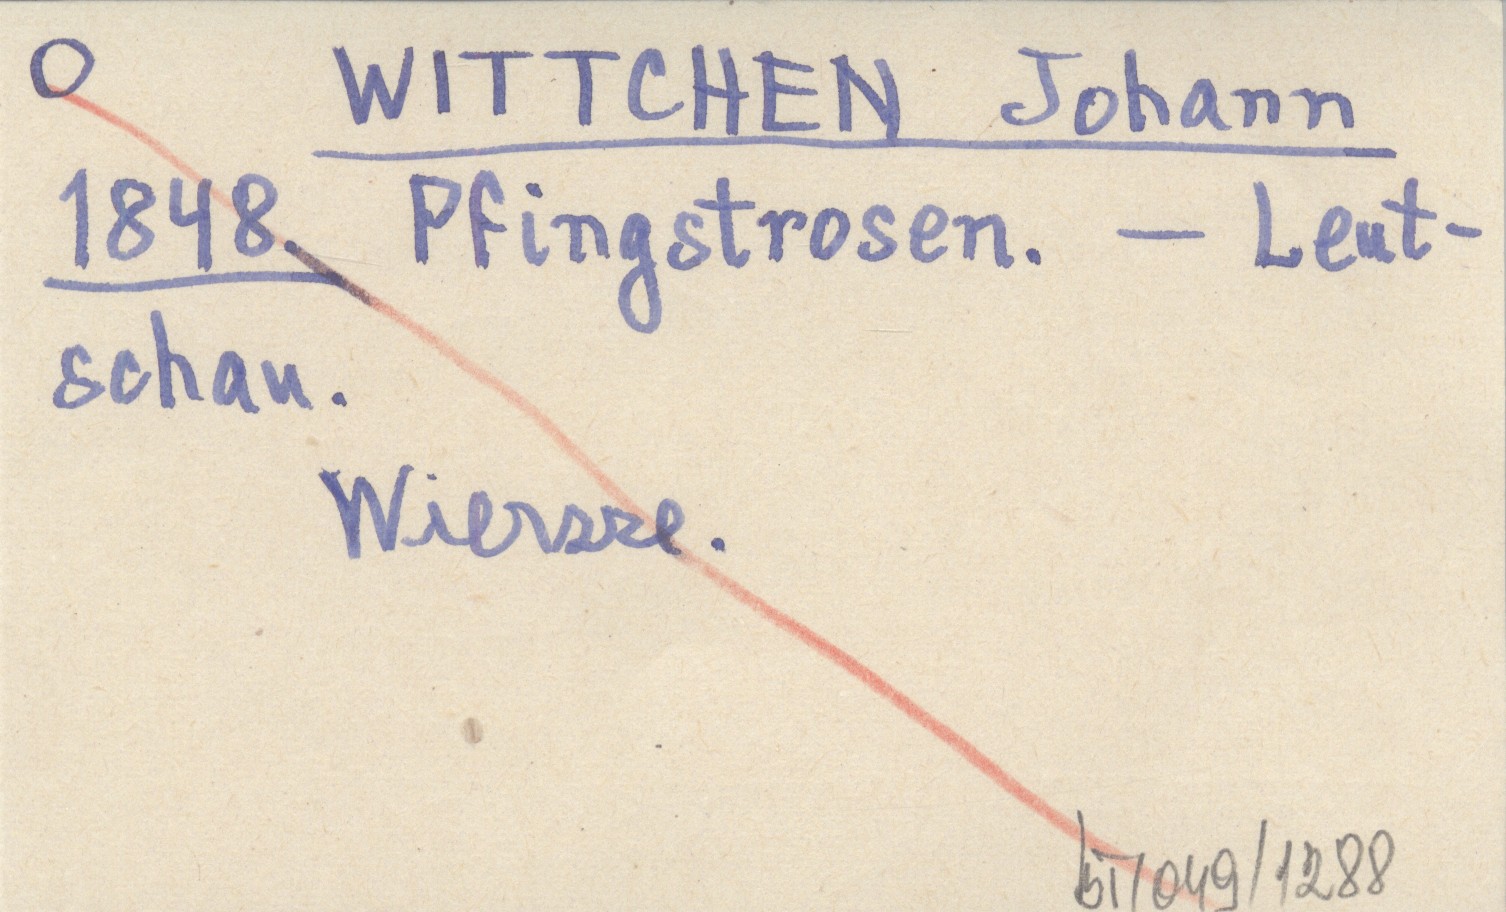 O WITTCHEN Johann
1848. Pfingstrosen. — Leut-
schau.
Wiersze.
/049/1288